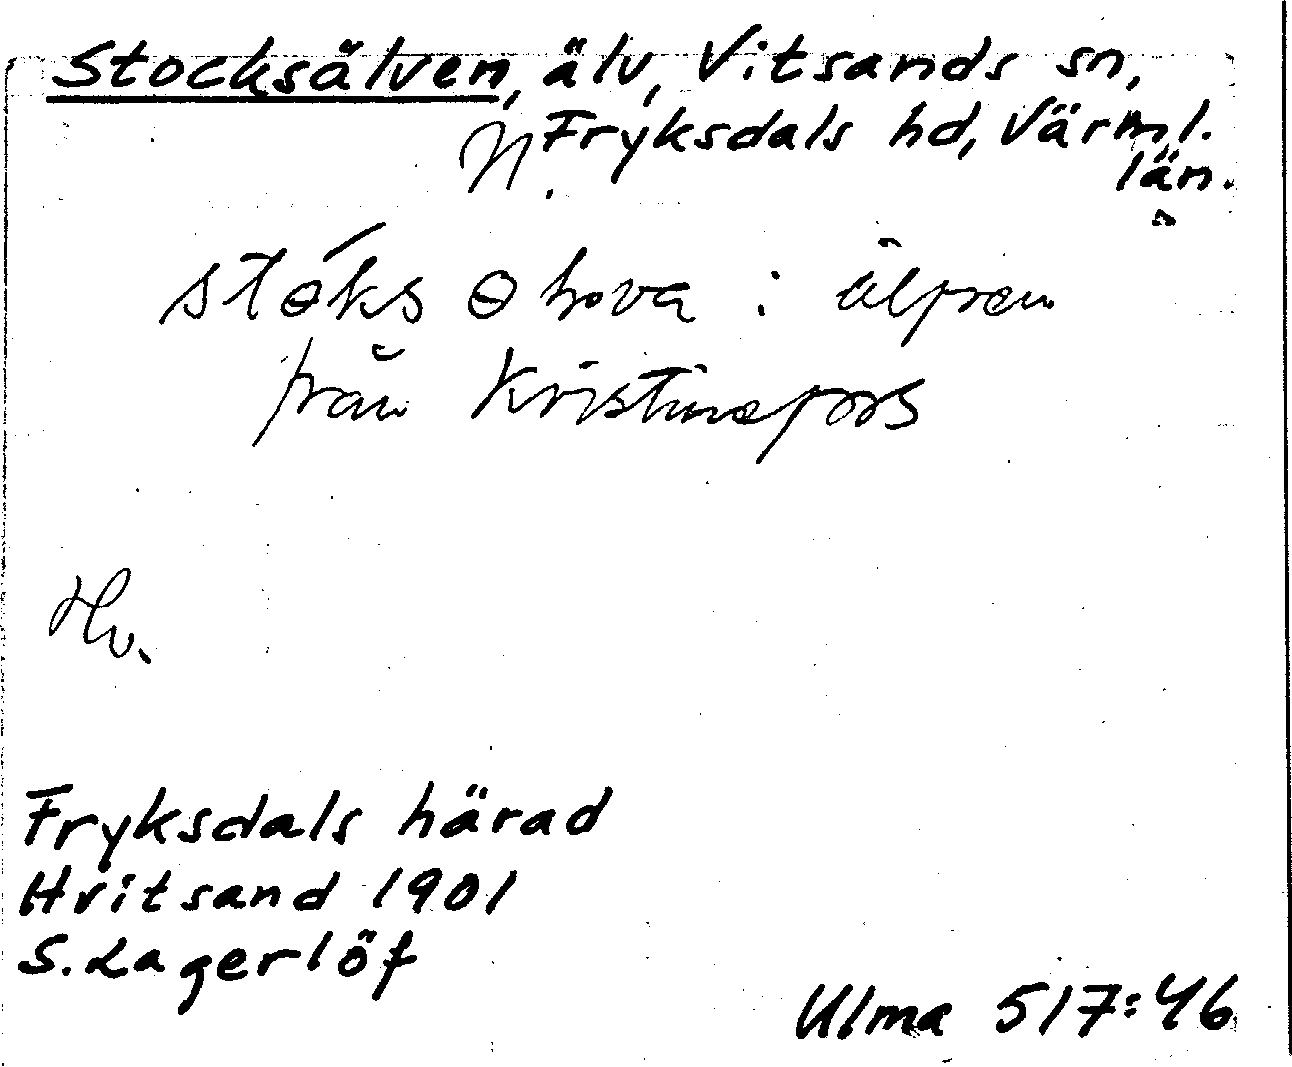 Stocksälven, älv, Vitsands sn,
N. Fryksdals hd, Värml.
län.
stɵ́ks ɵ hova : älfven
från Kristinefors
Hv.
Fryksdals härad
Hvitsand 1901
S. Lagerlöf
Ulma 517:46